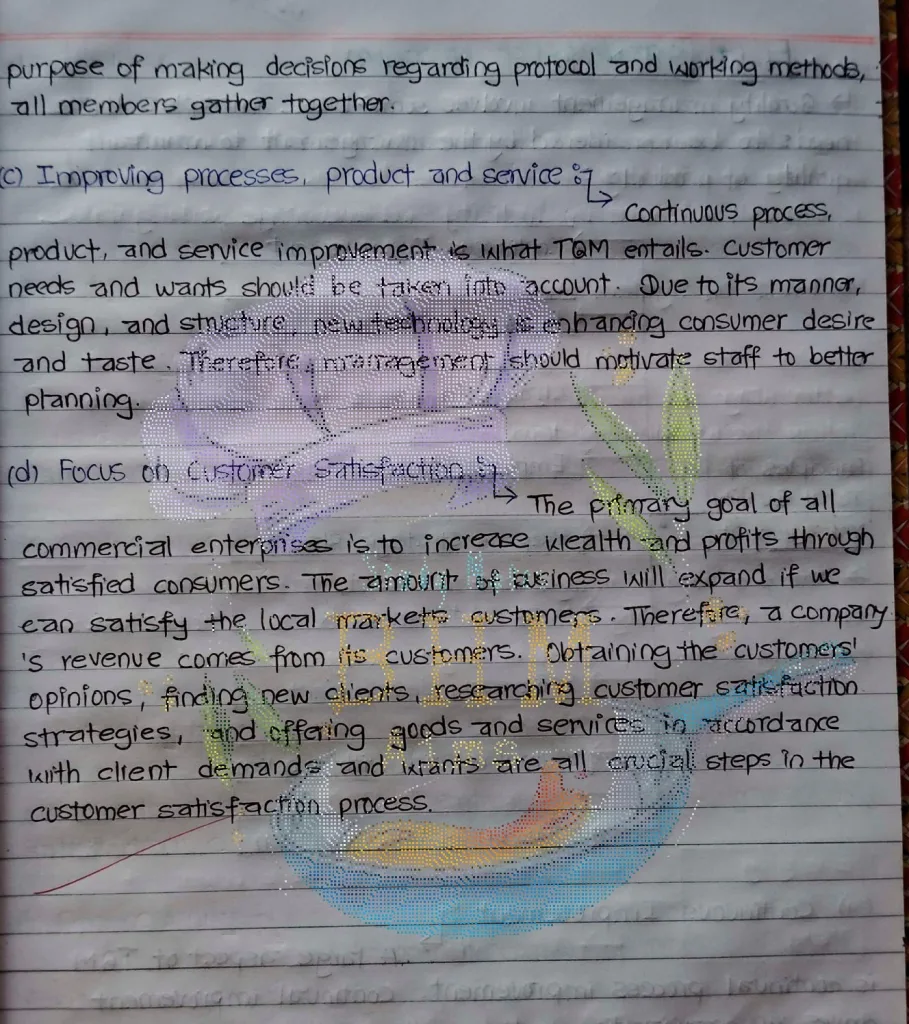 purpose of making decisions regarding protocol and working methods,
all members gather together.
(c) Improving processes, product and service :-
Continuous process,
product, and service improvement is what TQM entails. Customer
needs and wants should be taken into account. Due to its manner,
design, and structure, new technology is enhancing consumer desire
and taste. Therefore, management should motivate staff to better
planning.
(d) Focus on Customer Satisfaction :-
The primary goal of all
commercial enterprises is to increase wealth and profits through
satisfied consumers. The amount of business will expand if we
can satisfy the local markets customers. Therefore, a company
's revenue comes from its customers. Obtaining the customers'
opinions, finding new clients, researching customer satisfaction
strategies, and offering goods and services in accordance
with client demands and wants are all crucial steps in the
customer satisfaction process.
BHM